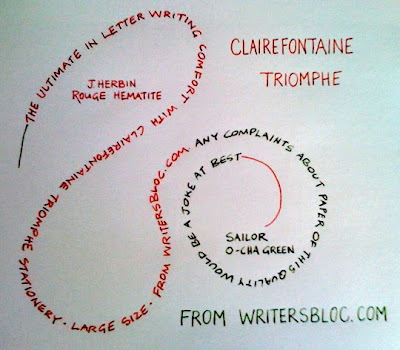 THE ULTIMATE IN LETTER WRITING COMFORT WITH CLAIREFONTAINE TRIOMPHE STATIONERY. LARGE SIZE. FROM WRITERSBLOC.COM. ANY COMPLAINTS ABOUT PAPER OF THIS QUALITY WOULD BE A JOKE AT BEST
J HERBIN
ROUGE HEMATITE
CLAIREFONTAINE
TRIOMPHE
SAILOR
O-CHA GREEN
FROM WRITERSBLOC.COM